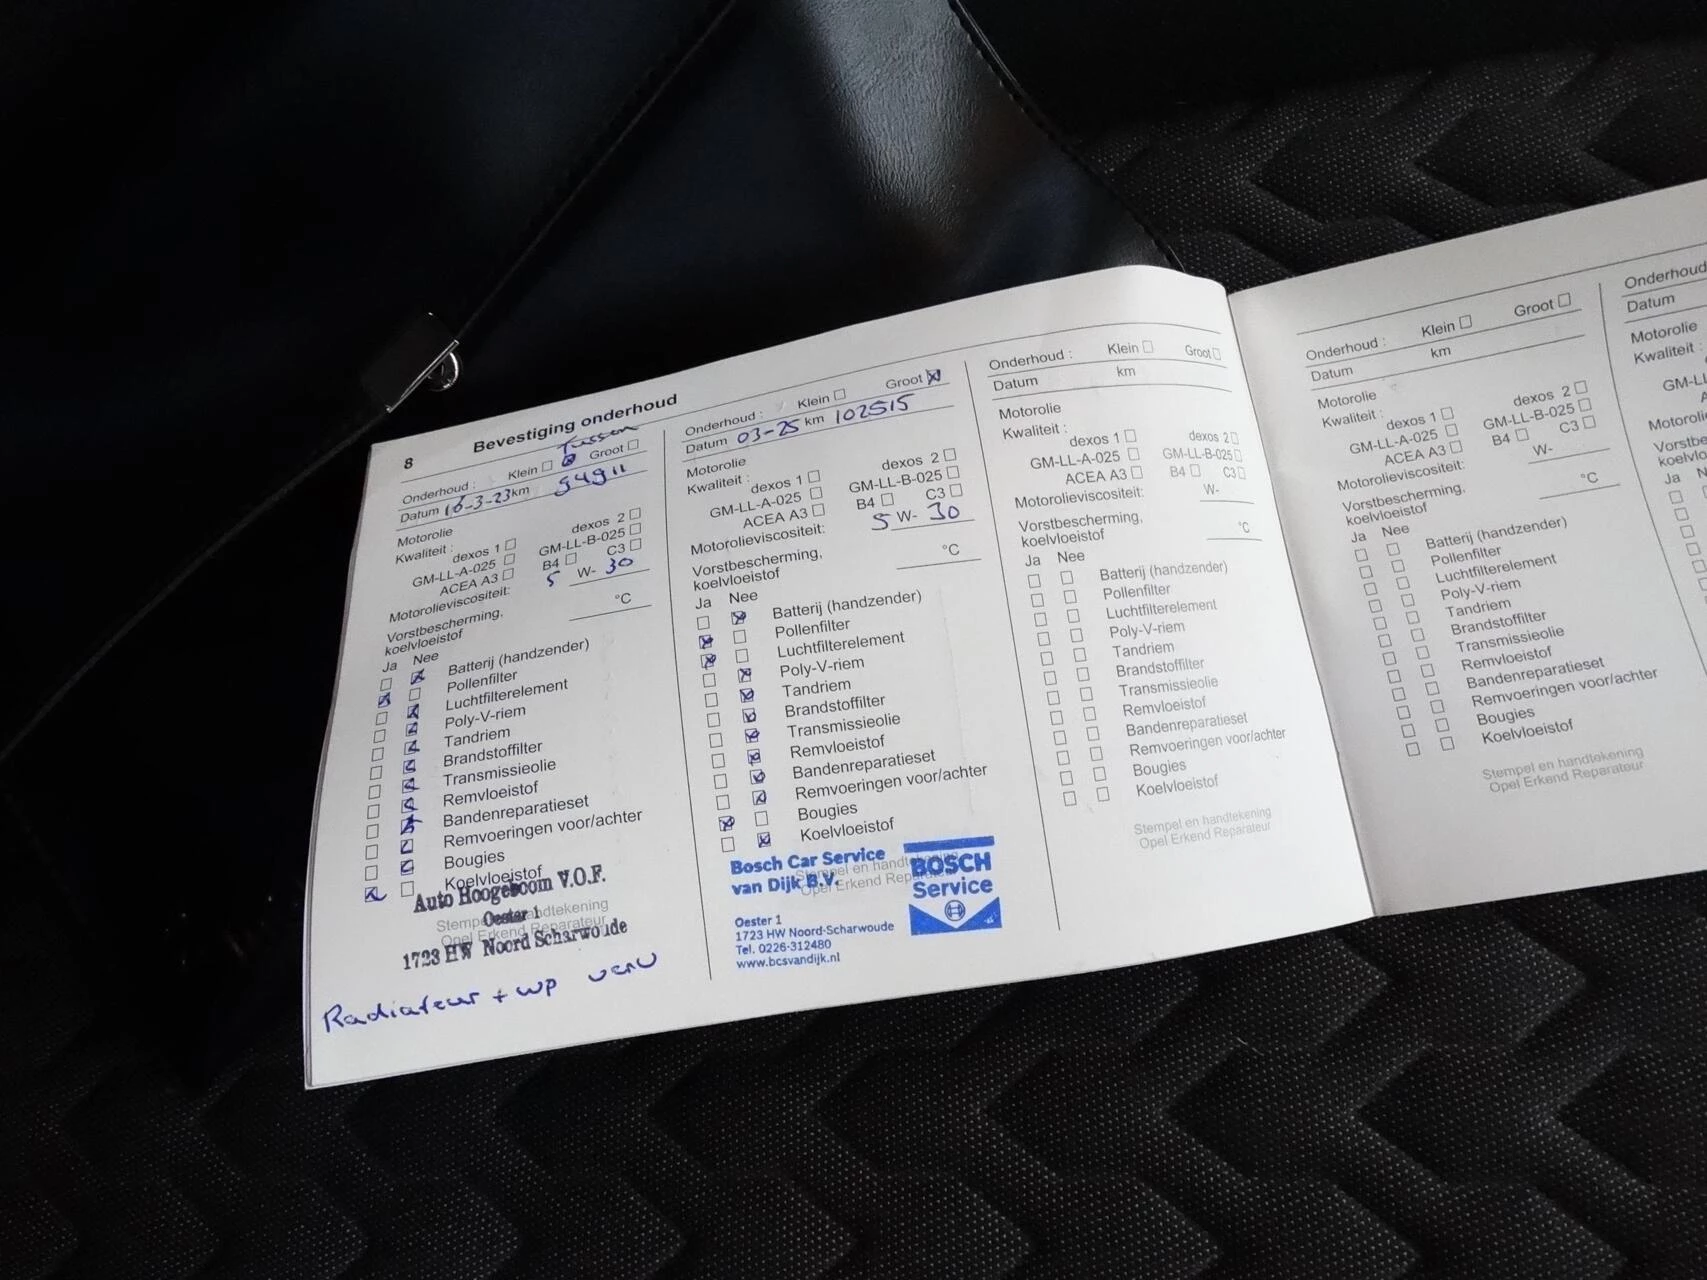 8 Bevestiging onderhoud
Tussen
Onderhoud : Klein Groot
Datum 16-3-23 km 94911
Motorolie
Kwaliteit : dexos 1 dexos 2
GM-LL-A-025 GM-LL-B-025
ACEA A3 B4 C3
Motorolieviscositeit: 5 W- 30
Vorstbescherming,
koelvloeistof °C
Ja Nee
Batterij (handzender)
Pollenfilter
Luchtfilterelement
Poly-V-riem
Tandriem
Brandstoffilter
Transmissieolie
Remvloeistof
Bandenreparatieset
Remvoeringen voor/achter
Bougies
Koelvloeistof
Auto Hoogeboom V.O.F.
Stempel en handtekening
Oester 1
Opel Erkend Reparateur
1723 HW Noord Scharwoude
Radiateur + wp verv
Onderhoud : Klein Groot
Datum 03-25 km 102515
Motorolie
Kwaliteit : dexos 1 dexos 2
GM-LL-A-025 GM-LL-B-025
ACEA A3 B4 C3
Motorolieviscositeit: 5 W- 30
Vorstbescherming,
koelvloeistof °C
Ja Nee
Batterij (handzender)
Pollenfilter
Luchtfilterelement
Poly-V-riem
Tandriem
Brandstoffilter
Transmissieolie
Remvloeistof
Bandenreparatieset
Remvoeringen voor/achter
Bougies
Koelvloeistof
Stempel en handtekening
Opel Erkend Reparateur
Bosch Car Service
van Dijk B.V.
Oester 1
1723 HW Noord-Scharwoude
Tel. 0226-312480
www.bcsvandijk.nl
BOSCH
Service
Onderhoud : Klein Groot
Datum km
Motorolie
Kwaliteit :
dexos 1 dexos 2
GM-LL-A-025 GM-LL-B-025
ACEA A3 B4 C3
Motorolieviscositeit: W-
Vorstbescherming,
koelvloeistof °C
Ja Nee
Batterij (handzender)
Pollenfilter
Luchtfilterelement
Poly-V-riem
Tandriem
Brandstoffilter
Transmissieolie
Remvloeistof
Bandenreparatieset
Remvoeringen voor/achter
Bougies
Koelvloeistof
Stempel en handtekening
Opel Erkend Reparateur
Onderhoud : Klein Groot
Datum km
Motorolie
Kwaliteit : dexos 1 dexos 2
GM-LL-A-025 GM-LL-B-025
ACEA A3 B4 C3
Motorolieviscositeit: W-
Vorstbescherming,
koelvloeistof °C
Ja Nee
Batterij (handzender)
Pollenfilter
Luchtfilterelement
Poly-V-riem
Tandriem
Brandstoffilter
Transmissieolie
Remvloeistof
Bandenreparatieset
Remvoeringen voor/achter
Bougies
Koelvloeistof
Stempel en handtekening
Opel Erkend Reparateur
Onderhoud
Datum
Motorolie
Kwaliteit :
Ja